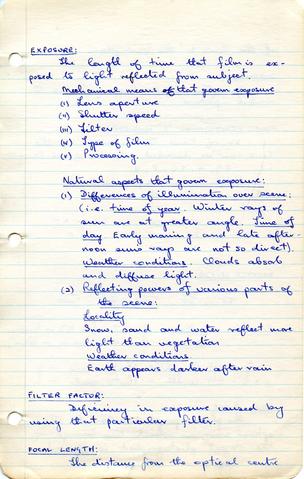 EXPOSURE:
The length of time that film is ex-
posed to light reflected from subject.
Mechanical means that govern exposure
(i) Lens aperture
(ii) Shutter speed
(iii) Filter
(iv) Type of film
(v) Processing.
Natural aspects that govern exposure:
(1) Differences of illumination over scene:
(i.e. time of year. Winter rays of
sun are at greater angle. Time of
day Early morning and late after-
noon suns rays are not so direct).
Weather conditions. Clouds absorb
and diffuse light.
(2) Reflecting powers of various parts of
the scene:
Locality
Snow, sand and water reflect more
light than vegetation
Weather conditions
Earth appears darker after rain
FILTER FACTOR:
in exposure caused by
using that particular filter.
FOCAL LENGTH:
The distance from the optical centre